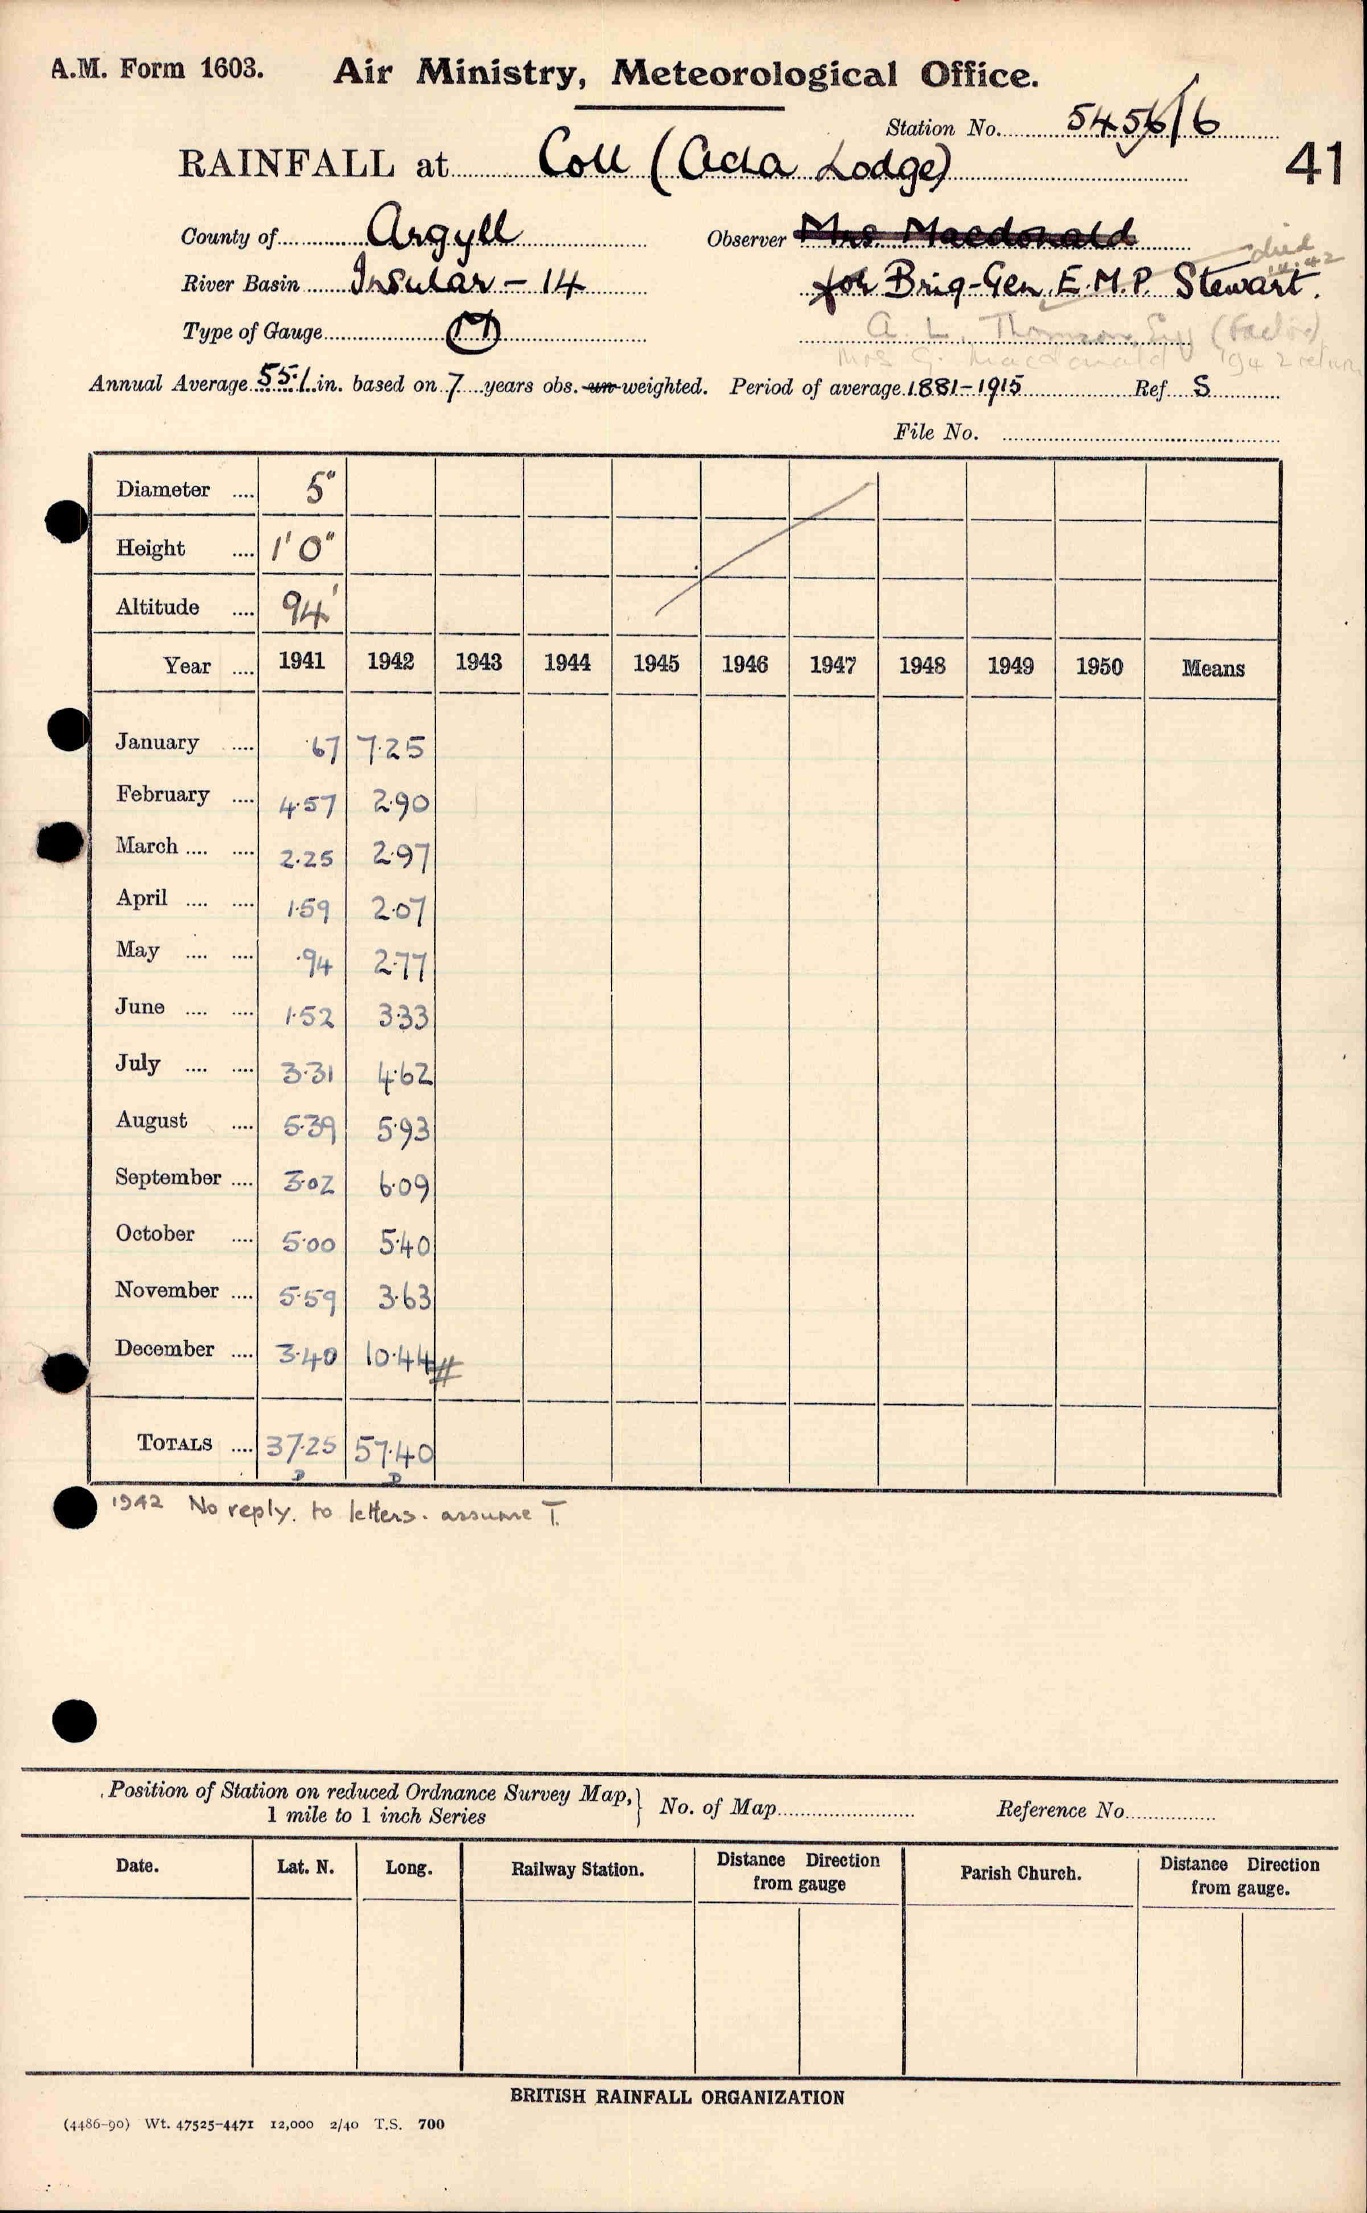 A.M. Form 1603. Air Ministry, Meteorological Office.
Station No. 5456/6
41
RAINFALL at Coll (Acha Lodge)
County of Argyll Observer Mrs Macdonald
died
River Basin Insular - 14 for Brig-Gen E.M.P. Stewart.
Type of Gauge M A. L. Thomson, Esq (Factor)
Mrs G. Macdonald 1942 return
Annual Average 55.1 in. based on 7 years obs. un-weighted. Period of average 1881-1915 Ref S
File No.
Diameter .... 5"
Height .... 1' 0"
Altitude .... 94'
Year .... 1941 1942 1943 1944 1945 1946 1947 1948 1949 1950 Means
January .... .67 7.25
February .... 4.57 2.90
March .... .... 2.25 2.97
April .... .... 1.59 2.07
May .... .... .94 2.77
June .... .... 1.52 3.33
July .... .... 3.31 4.62
August .... 5.39 5.93
September .... 3.02 6.09
October .... 5.00 5.40
November .... 5.59 3.63
December .... 3.40 10.44 #
TOTALS .... 37.25 57.40
D D
1942 No reply. to letters. assume T.
Position of Station on reduced Ordnance Survey Map, } No. of Map Reference No.
1 mile to 1 inch Series
Date. Lat. N. Long. Railway Station. Distance Direction from gauge Parish Church. Distance Direction from gauge.
BRITISH RAINFALL ORGANIZATION
(4486-90) Wt. 47525-4471 12,000 2/40 T.S. 700